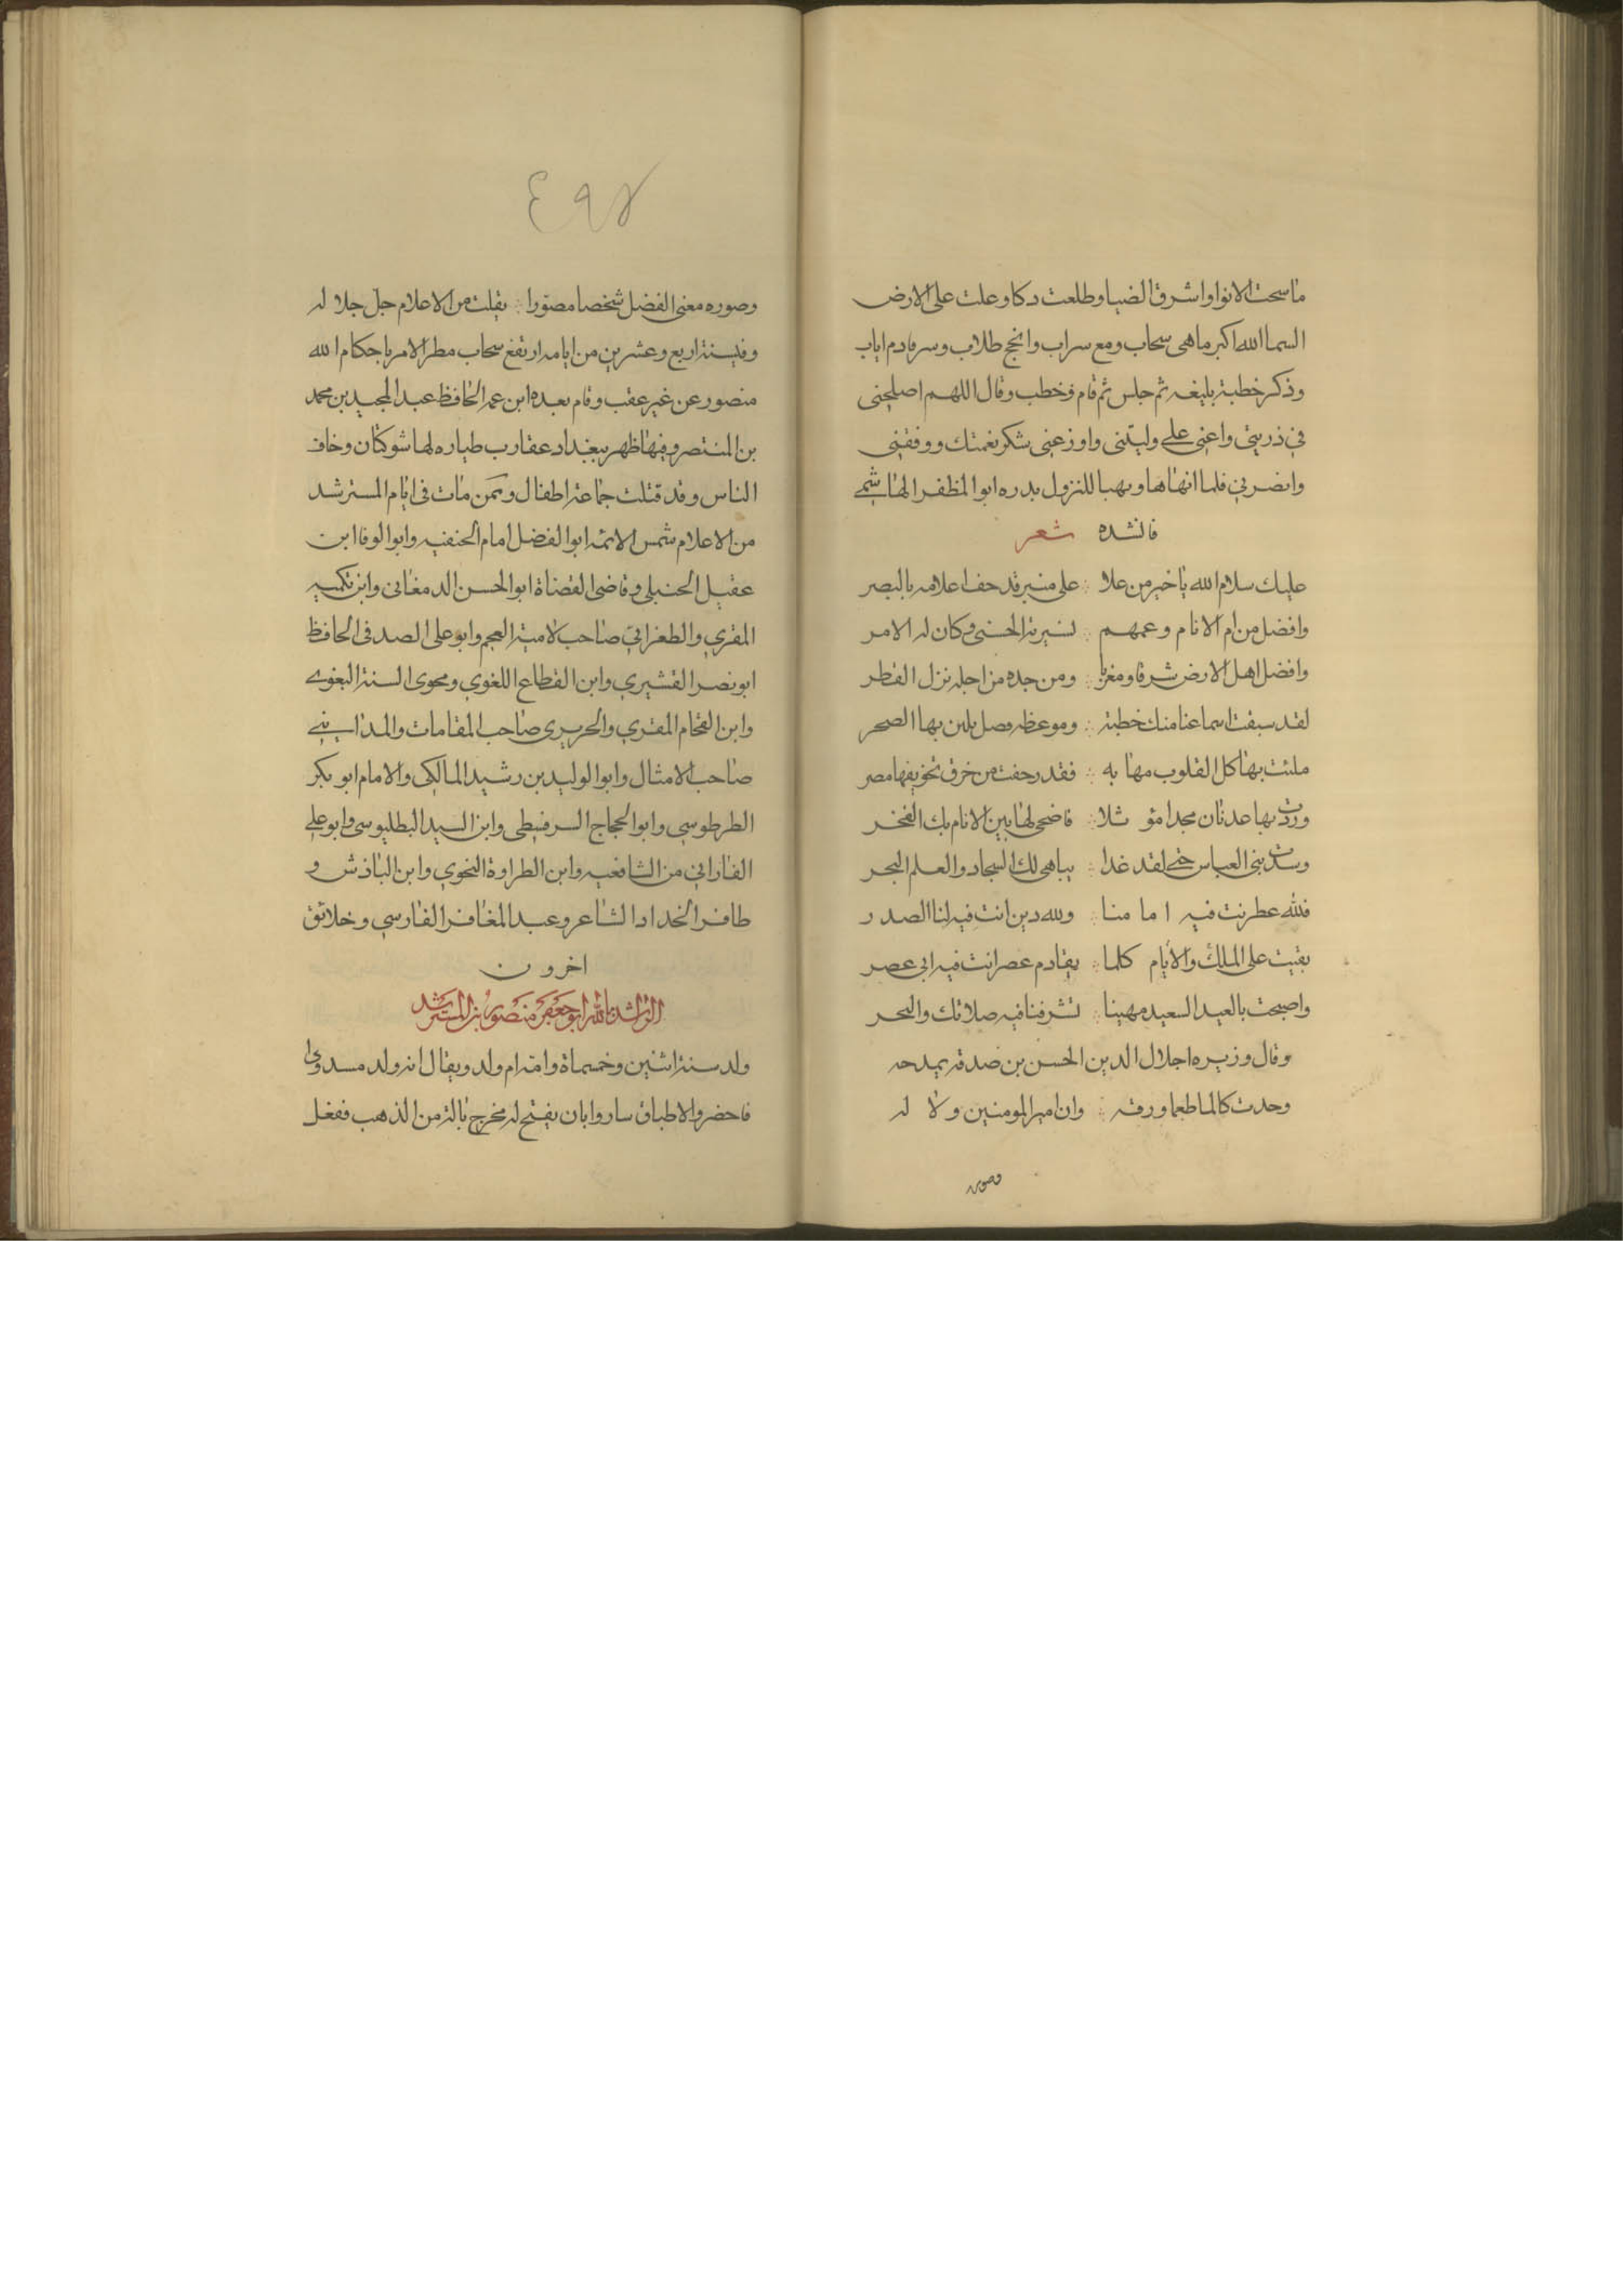 ماسحت الانوا واشرق الضيا وطلعت دكا وعلت على الارض
السما الله اكبر ما همى سحاب ومع سراب وانجح طلاب وسر قادم اياب
وذكر خطبة بليغه ثم جلس ثم قام فخطب وقال اللهم اصلحنى
في ذريتي واعنى على وليتنى واوزعنى شكر نعمتك ووفقنى
وانصرني فلما انهاها وبهيا للنزول بدره ابوا لمظفر الهاشمي
فانشده شعر
عليك سلام الله يا خير من علا ∴ على منبر قد حف اعلامه بالبصر
وافضل من ام الانام وعمهم ∴ لسيرته الحسنى وكان له الامر
وافضل اهل الارض شرقا ومغربا ∴ ومن جده من اجله نزل القطر
لقد سبقت اسماعنا منك خطبة ∴ وموعظه فصل يلين بها الصحر
ملئت بها كل القلوب مهابه ∴ فقد رحفت من خرق تخويفها مصر
وزدت بها عدنان مجدا مؤثلا ∴ فاضحى لها بين الانام بك الفخر
وسدت بنى العباس حتى لقد غدا ∴ يباهى لك السجاد والعلم البحر
فلله عطر نت فيه امامنا ∴ ولله دين انت فيه لنا الصدر
بقيت على الملك والايام كلما ∴ يقادم عصر انت فيه ابى عصر
واصبحت بالعيد السعيد مهينا ∴ تشرفنا فيه صلاتك والبحر
وقال وزيره اجلال الدين الحسن بن صدقه يمدحه
وحدت كالما طعما ورقه ∴ وان امير المومنين ولا له
وصوره
٤٩٨
وصوره معنى الفضل شخصا مصورا ∴ يقلت من الاعلام جل جلا له
وفي سنة اربع وعشرين من ايامه ارتفع سحاب مطر الامر باحكام الله
منصور عن غير عقب وقام بعده ابن عمه الحافظ عبد المجيد بن محمد
بن المنتصر وفيها ظهر ببغداد عقارب طياره لها شوكتان وخاف
الناس وقد قتلت جماعة اطفال وممن مات فى ايام المسترشد
من الاعلام شمس الائمه ابوا لفضل امام الحنفيه وابوا لوفا ابن
عقيل الحنبلى وقاضى القضاة ابوا لحسن الدمغانى وابن تكميه
المقري والطغرايي صاحب لامية العجم وابو على الصدفى الحافظ
ابو نصر القشيري وابن القطاع اللغوي ومحوى السنة البغوى
وابن الفحام المقري والحريرى صاحب المقامات والمدايني
صاحب الامثال وابوا لوليد بن رشيد المالكى والامام ابو بكر
الطرطوسي وابوا لحجاج السرقسطى وابن السيد البطليوسى وابو على
الفاراني من الشافعيه وابن الطراوة النحوي وابن الباذش و
ظافر الحداد الشاعر وعبد المغافر الفارسي وخلائق
اخرون
الراشد بالله ابو جعفر منصور بن المسترشد
ولد سنة اثنين وخمسماة وامه ام ولد ويقال انه ولد مسدودا
فاحضروا الاطباق ساروا بان يفتح له مخرج بالة من الذهب ففعل